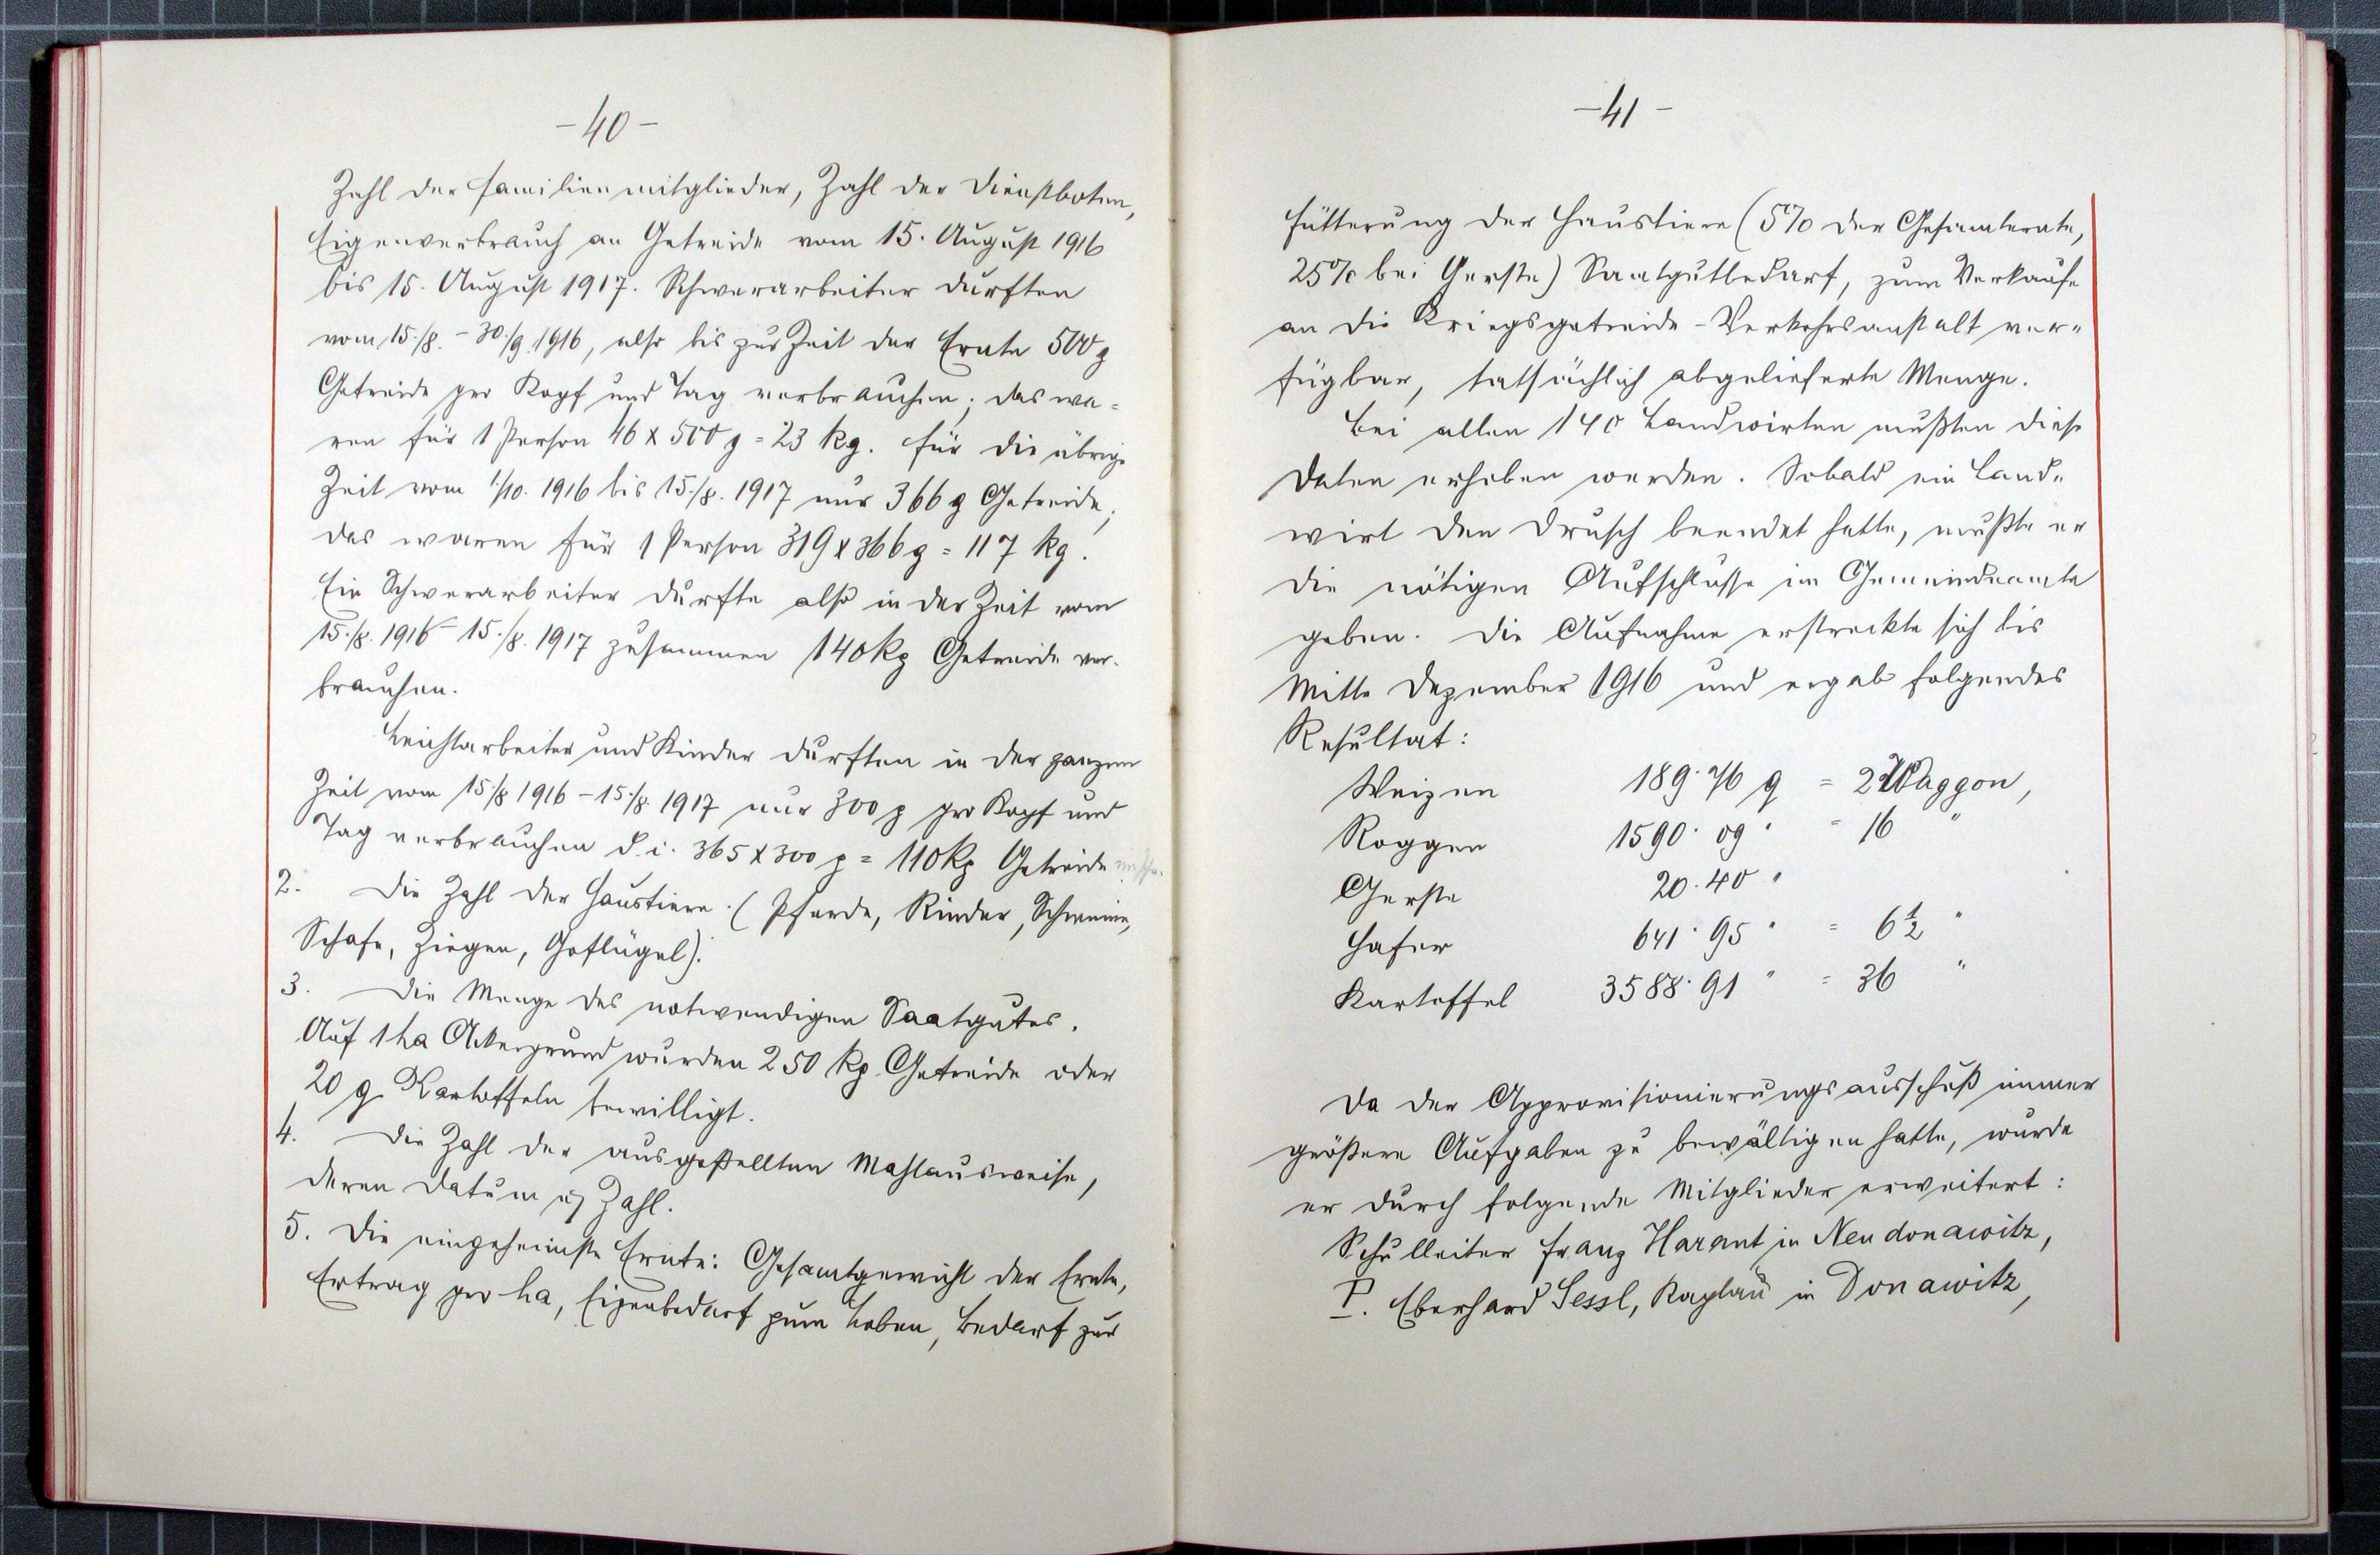 - 40 -
Zahl der Familienmitglieder, Zahl der Dienstboten,
Eigenverbrauch an Getreide vom 15. August 1916
bis 15. August 1917. Schwerarbeiter durften
vom 15./8. - 30./9. 1916, also bis zur Zeit der Ernte 500 g
Getreide pro Kopf und Tag verbrauchen; das wa=
ren für 1 Person 46 x 500 g = 23 kg. Für die übrige
Zeit vom 1./10. 1916 bis 15./8. 1917 nur 366 g Getreide;
das waren für 1 Person 319 x 366 g = 117 kg.
Ein Schwerarbeiter durfte also in der Zeit vom
15./8. 1916 - 15./8. 1917 zusammen 140 kg Getreide ver-
brauchen.
Leichtarbeiter und Kinder durften in der ganzen
Zeit vom 15./8 1916 - 15./8. 1917 nur 300 g pro Kopf und
Tag verbrauchen d. i. 365 x 300 g = 110 kg Getreide
2. Die Zahl der Haustiere. (Pferde, Rinder, Schweine,
Schafe, Ziegen, Geflügel).
3. Die Menge des notwendigen Saatgutes.
Auf 1 ha Ackergrund wurden 250 kg Getreide oder
20 q Kartoffeln bewilligt.
4. Die Zahl der ausgestellten Mahlausweise,
deren Datum u Zahl.
5. Die eingeheimste Ernte: Gesamtgewicht der Ernte,
Ertrag pro ha, Eigenbedarf zum Leben, Bedarf zur
- 41 -
Fütterung der Haustiere (5% der Gesamternte,
25% bei Gerste) Saatgutbedarf, zum Verkaufe
an die Kriegsgetreide-Verkehrsanstalt ver=
fügbar, tatsächlich abgelieferte Menge.
Bei allen 140 Landwirten mußten diese
Daten erhoben werden. Sobald ein Land=
wirt den Drusch beendet hatte, mußte er
die nötigen Aufschlüsse im Gemeindeamte
geben. Die Aufnahme erstreckte sich bis
Mitte Dezember 1916 und ergab folgendes
Resultat:
Weizen 189·76 q = 2 Waggon,
Roggen 1590·09 " = 16 "
Gerste 20·40 "
Hafer 641·95 " = 6 1/2 "
Kartoffel 3588·91 " = 36 "
Da der Approvisionierungsausschuß immer
größere Aufgaben zu bewältigen hatte, wurde
er durch folgende Mitglieder erweitert:
Schulleiter Franz Harant in Neudonawitz,
P. Eberhard Sessl, Kaplan in Donawitz,